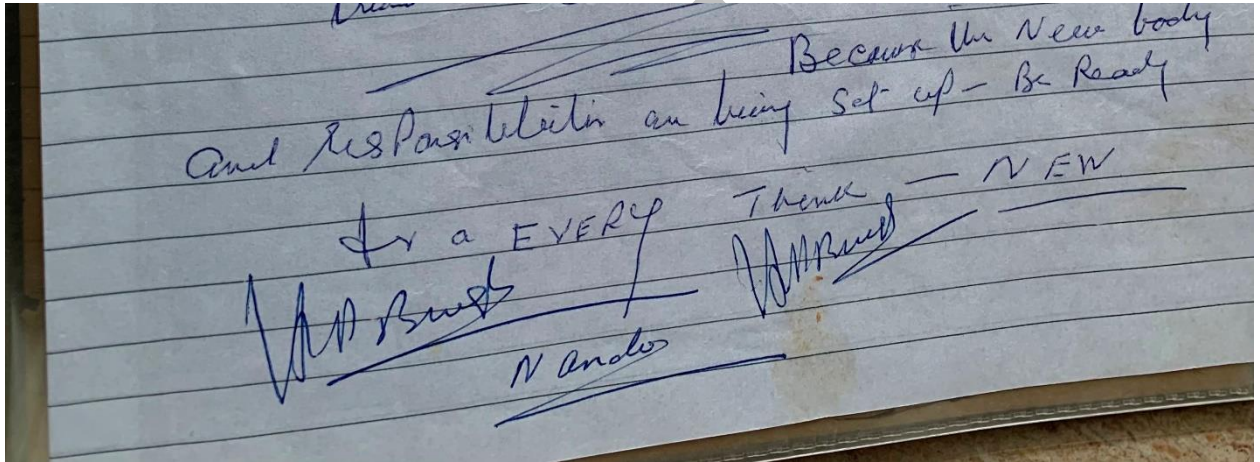 Because the New body
and responsibilities are being Set up - Be Ready
for a EVERY Thank — NEW
Nandos